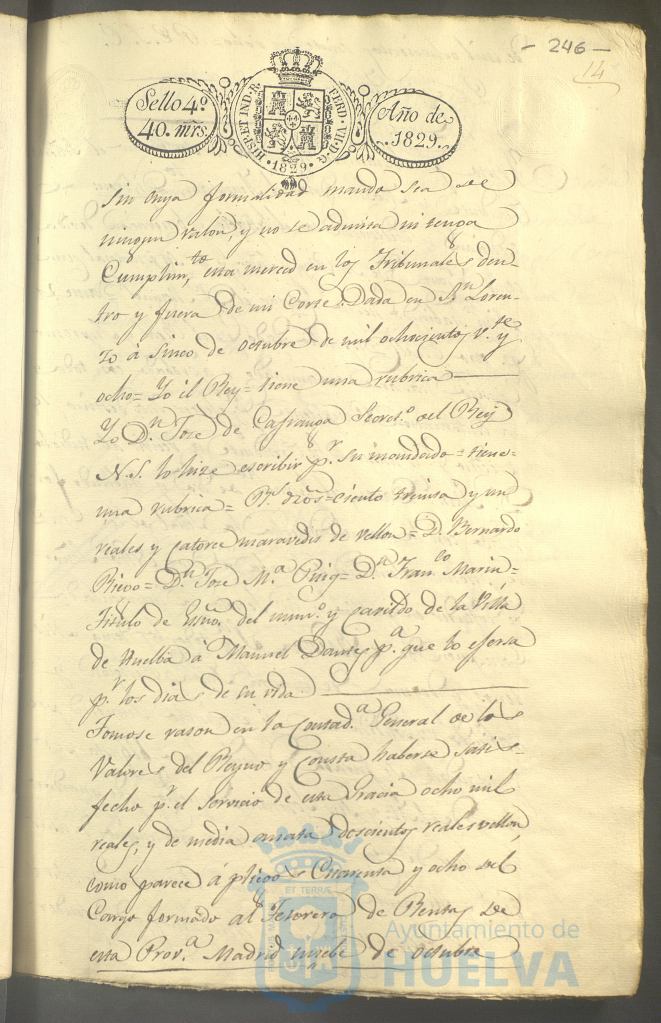 - 246 -
14
Sello 4º
40. mrs.
HISP. ET IND. R.
FERD. VII. D. G.
·1829·
Año de
1829.
sin cuya formalidad mando sea de
ningun valor, y no se admita ni tenga
Cumplim.to esta merced en los Tribunales den-
tro y fuera de mi Corte. Dada en S.n Loren-
zo á sinco de octubre de mil ochocientos v.te y
ocho= Yo el Rey= tiene una rubrica
Yo D.n Jozé de Cafranga Secret.o del Rey
N. S. lo hize escribir p.r su mandado= tiene
una rubrica= R.s dros= ciento treinta y un
reales y catorce maravedis de vellon= D. Bernardo
Riego= D.n Jozé M.a Puig= D.n Fran.co Marin=
Titulo de Esno. del num.o y cavildo de la Villa
de Huelba á Manuel p.a que lo ejersa
p.r los dias de su vida
Tomose rason en la Contad.a General de los
Valores del Reyno y Consta haberse satis-
fecho p.r el servicio de esta Gracia ocho mil
reales, y de media annata descientos reales vellon,
como parece á pliegos Cuarenta y ocho del
Cargo formado al Tesorero de Rentas de
esta Prov.a Madrid nuebe de octubre
ET TERRAE
Ayuntamiento de
HUELVA